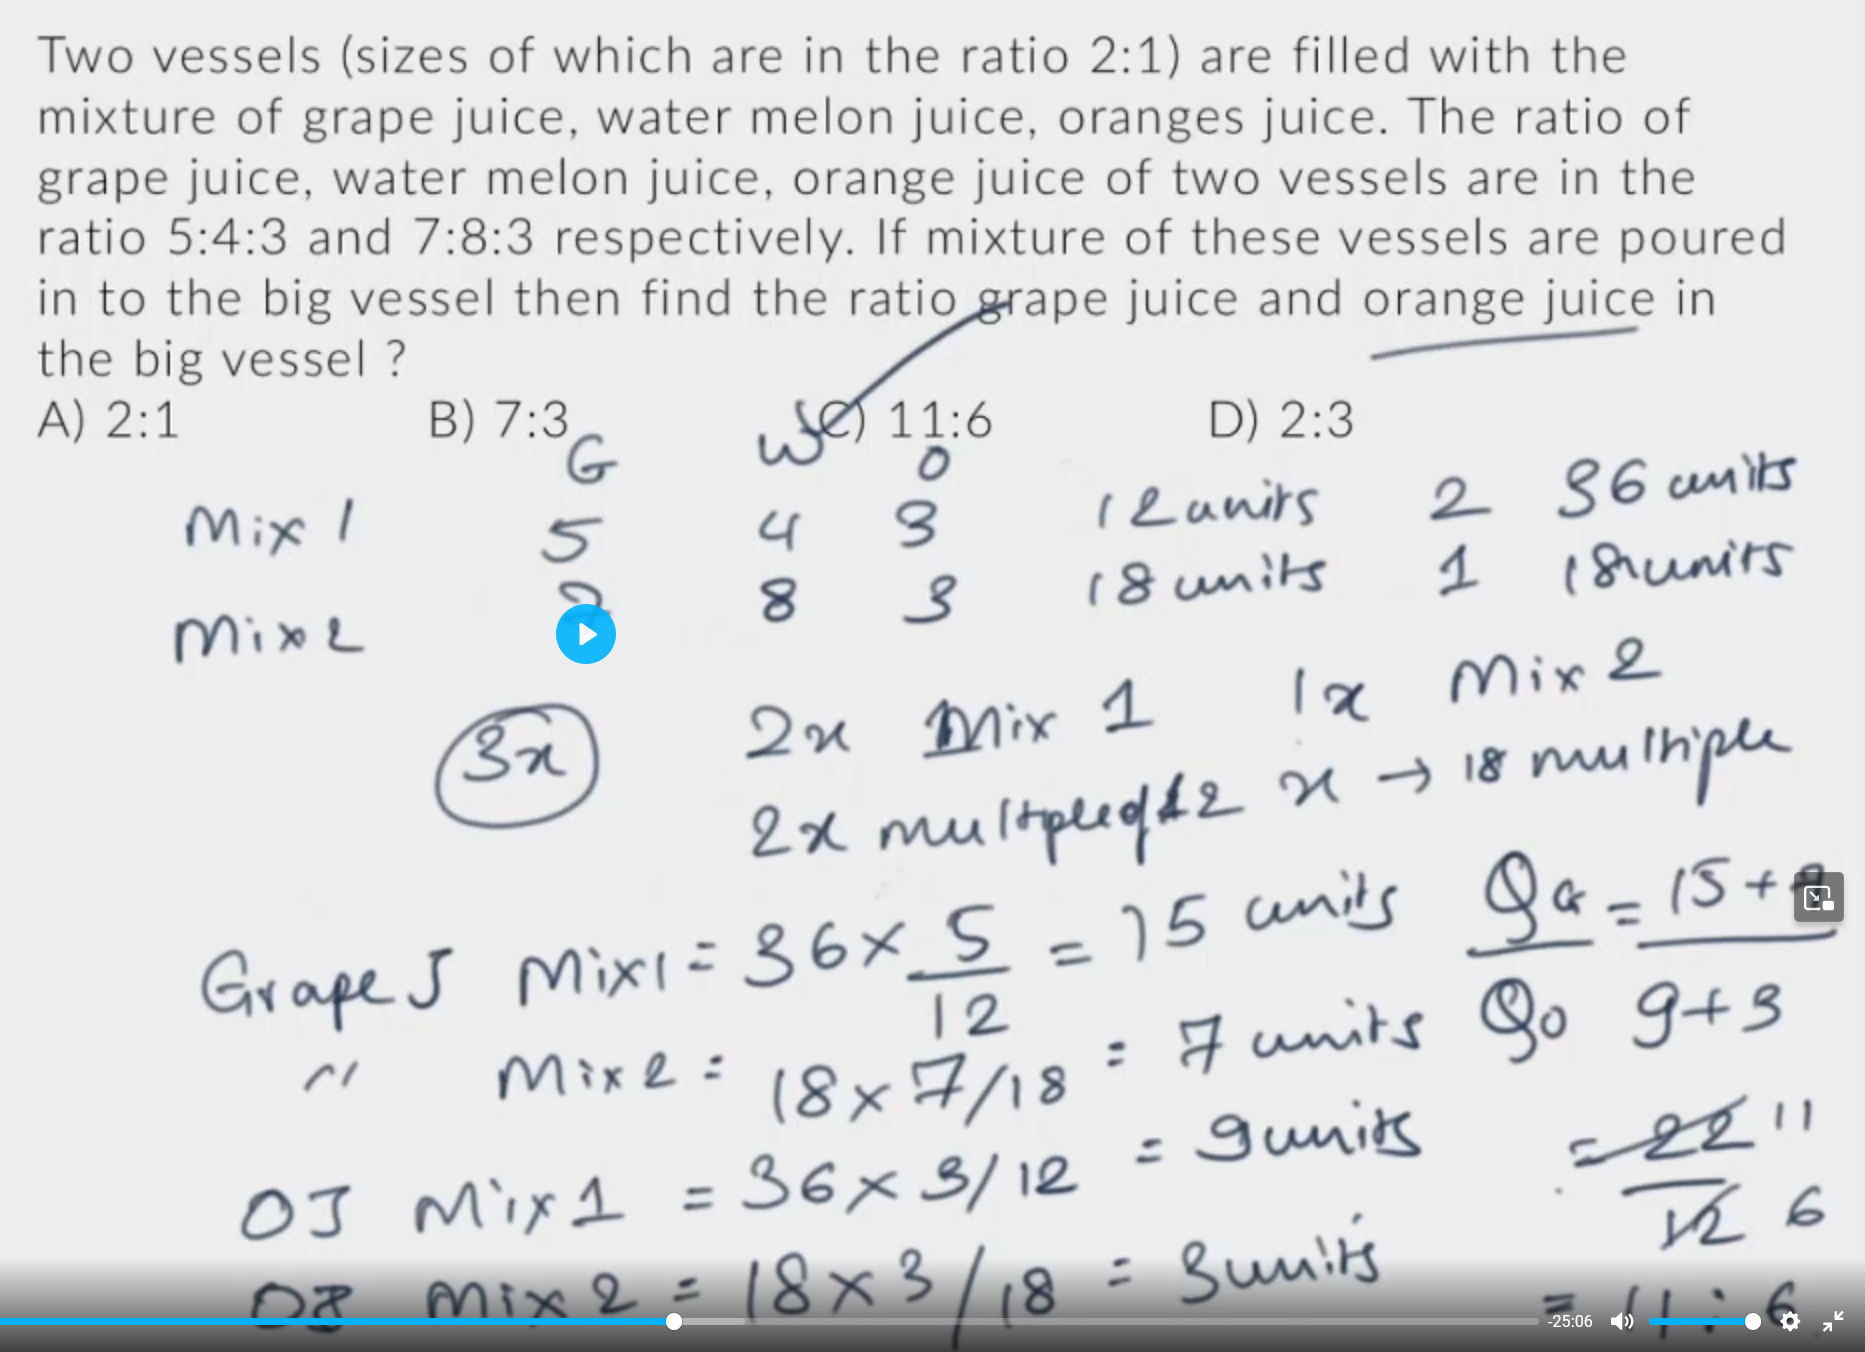 Two vessels (sizes of which are in the ratio 2:1) are filled with the
mixture of grape juice, water melon juice, oranges juice. The ratio of
grape juice, water melon juice, orange juice of two vessels are in the
ratio 5:4:3 and 7:8:3 respectively. If mixture of these vessels are poured
in to the big vessel then find the ratio grape juice and orange juice in
the big vessel ?
A) 2:1 B) 7:3 C) 11:6 D) 2:3
G W O
Mix 1 5 4 3 12 units 2 36 units
Mix 2 8 3 18 units 1 18 units
3x 2x Mix 1 1x Mix 2
2x multiple of 12 x → 18 multiple
Grape J Mix 1 = 36 × 5/12 = 15 units QG/QO = 15+ / 9+3
" Mix 2 = 18 × 7/18 = 7 units
OJ Mix 1 = 36 × 3/12 = 9 units = 22/12 11 6
OJ Mix 2 = 18 × 3/18 = 3 units = 11 : 6
-25:06